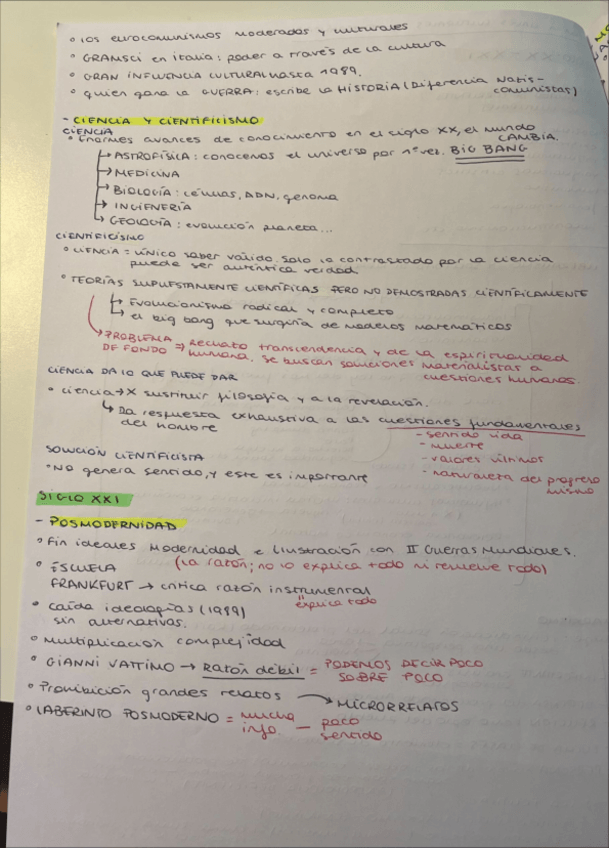 • los eurocomunismos moderados y culturales
• GRAMSCI en Italia: poder a través de la cultura
• GRAN INFLUENCIA CULTURAL hasta 1989.
• quien gana la GUERRA: escribe la HISTORIA (Diferencia Natis-
comunistas)
- CIENCIA Y CIENTIFICISMO
CIENCIA
• Enormes avances de conocimiento en el siglo XX, el mundo
CAMBIA.
↳ ASTROFÍSICA: conocemos el universo por 1ª vez. BIG BANG
↳ MEDICINA
↳ BIOLOGÍA: células, ADN, genoma
↳ INGIENERÍA
↳ GEOLOGÍA: evolución planeta...
CIENTIFICISMO
• CIENCIA = único saber válido. Solo lo contrastado por la ciencia
puede ser auténtica verdad.
• TEORÍAS SUPUESTAMENTE CIENTÍFICAS PERO NO DEMOSTRADAS CIENTÍFICAMENTE
↳ Evolucionismo radical y completo
↳ el big bang que surgiría de modelos matemáticos
PROBLEMA DE FONDO ⇒ Rechazo transcendencia y de la espiritualidad
humana. Se buscan soluciones materialistas a
cuestiones humanas.
CIENCIA DA LO QUE PUEDE DAR
• ciencia → X sustituir filosofía y a la revelación.
↳ Da respuesta exhaustiva a las cuestiones fundamentales
del hombre
- sentido vida
- muerte
- valores últimos
- naturaleza del progreso
mismo
SOLUCIÓN CIENTIFICISTA
• NO genera sentido, y este es importante
SIGLO XXI
- POSMODERNIDAD
• Fin ideales Modernidad e Ilustración con II Guerras Mundiales.
(La razón; no lo explica todo ni resuelve todo)
• ESCUELA
FRANKFURT → crítica razón instrumental
= explica todo
• Caída ideologías (1989)
sin alternativas.
• Multiplicación complejidad
• GIANNI VATTIMO → Razón débil = PODEMOS DECIR POCO
SOBRE POCO
• Prohibición grandes relatos → MICRORRELATOS
• LABERINTO POSMODERNO = mucha info — poco sentido